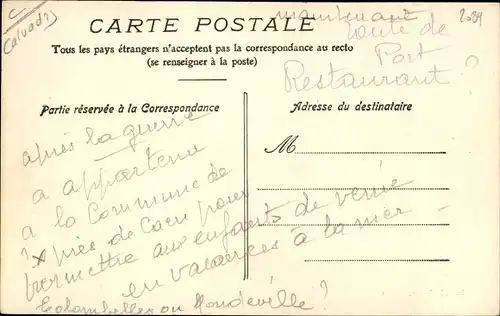 C
(Calvados)
CARTE POSTALE
maintenant
route de
Port
Restaurant ?
Tous les pays étrangers n'acceptent pas la correspondance au recto
(se renseigner à la poste)
Partie réservée à la Correspondance
Adresse du destinataire
M
après la guerre
a appartenu
a la Commune de
? x près de Caen pour
permettre aux enfants de venir
en vacances à la mer -
Colombelles ou Mondeville ?